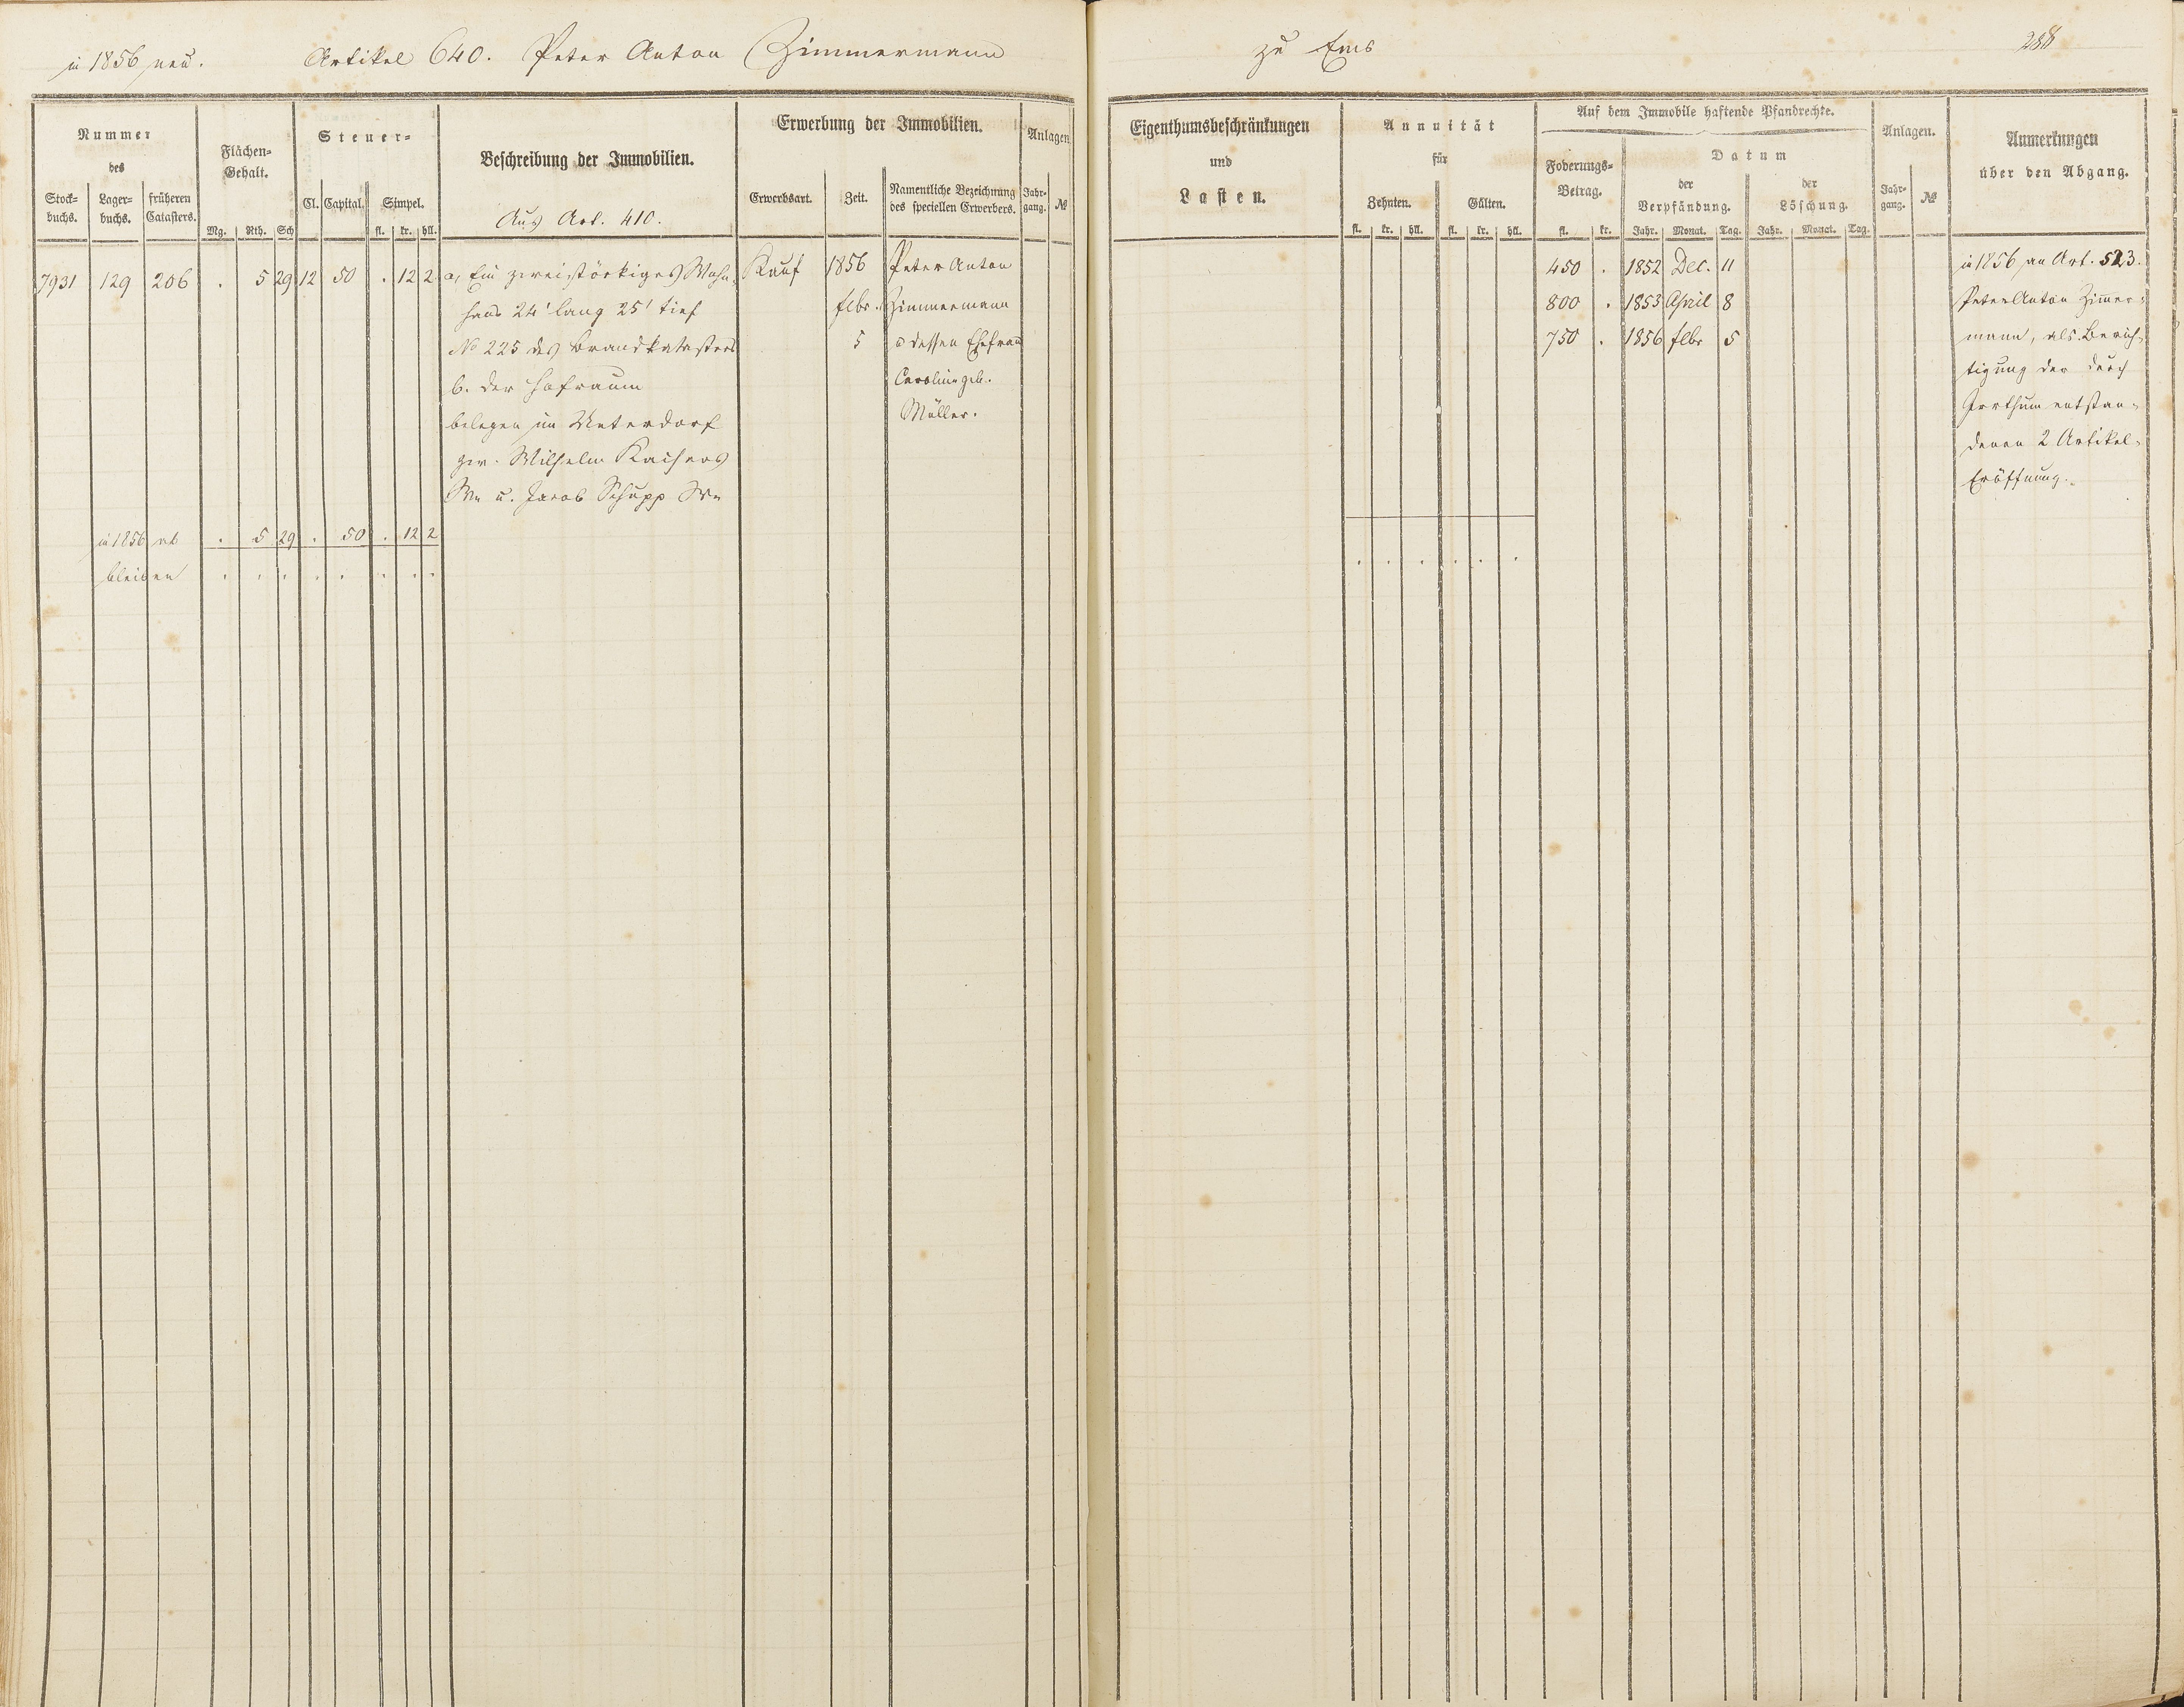 in 1856 neu. Artikel 640. Peter Anton Zimmermann
zu Ems
Nummer
des
Stock-
buchs.
Lager-
buchs.
früheren
Catasters.
Flächen-
Gehalt.
Mg. Rth. Sch
Steuer-
Cl. Capital. Simpel.
fl. kr. hll.
Beschreibung der Immobilien.
Aus Art. 410.
Erwerbung der Immobilien.
Erwerbsart. Zeit.
Namentliche Bezeichnung
des speciellen Erwerbers.
Anlagen
Jahr-
gang. №
7931 129 206 . 5 29 12 50 . 12 2
a, Ein zweistöckiges Wohn-
haus 24' lang 25' tief
No 225 des Brandkatasters
b. der Hofraum
belegen im Unterdorf
zw. Wilhelm Kaisers
We u. Jacob Schupp We
Kauf
1856
Febr.
5
Peter Anton
Zimmermann
u dessen Ehefrau
Caroline geb.
Müller.
in 1856 ab . 5 29 . 50 . 12 2
bleiben . . . . . . . .
Eigenthumsbeschränkungen
und
Lasten.
Annuität
für
Zehnten. Gülten.
fl. kr. hll. fl. kr. hll.
. . . . . .
Auf dem Immobile haftende Pfandrechte.
Foderungs-
Betrag.
fl. kr.
Datum
der
Verpfändung.
Jahr. Monat. Tag.
der
Löschung.
Jahr. Monat. Tag.
Anlagen.
Jahr-
gang. №
Anmerkungen
über den Abgang.
450 . 1852 Dec. 11
800 . 1853 April 8
750 . 1856 Febr 5
in 1856 an Art. 523.
Peter Anton Zimmer-
mann, als Berich-
tigung der durch
Irrthum entstan-
denen 2 Artikel-
Eröffnung.